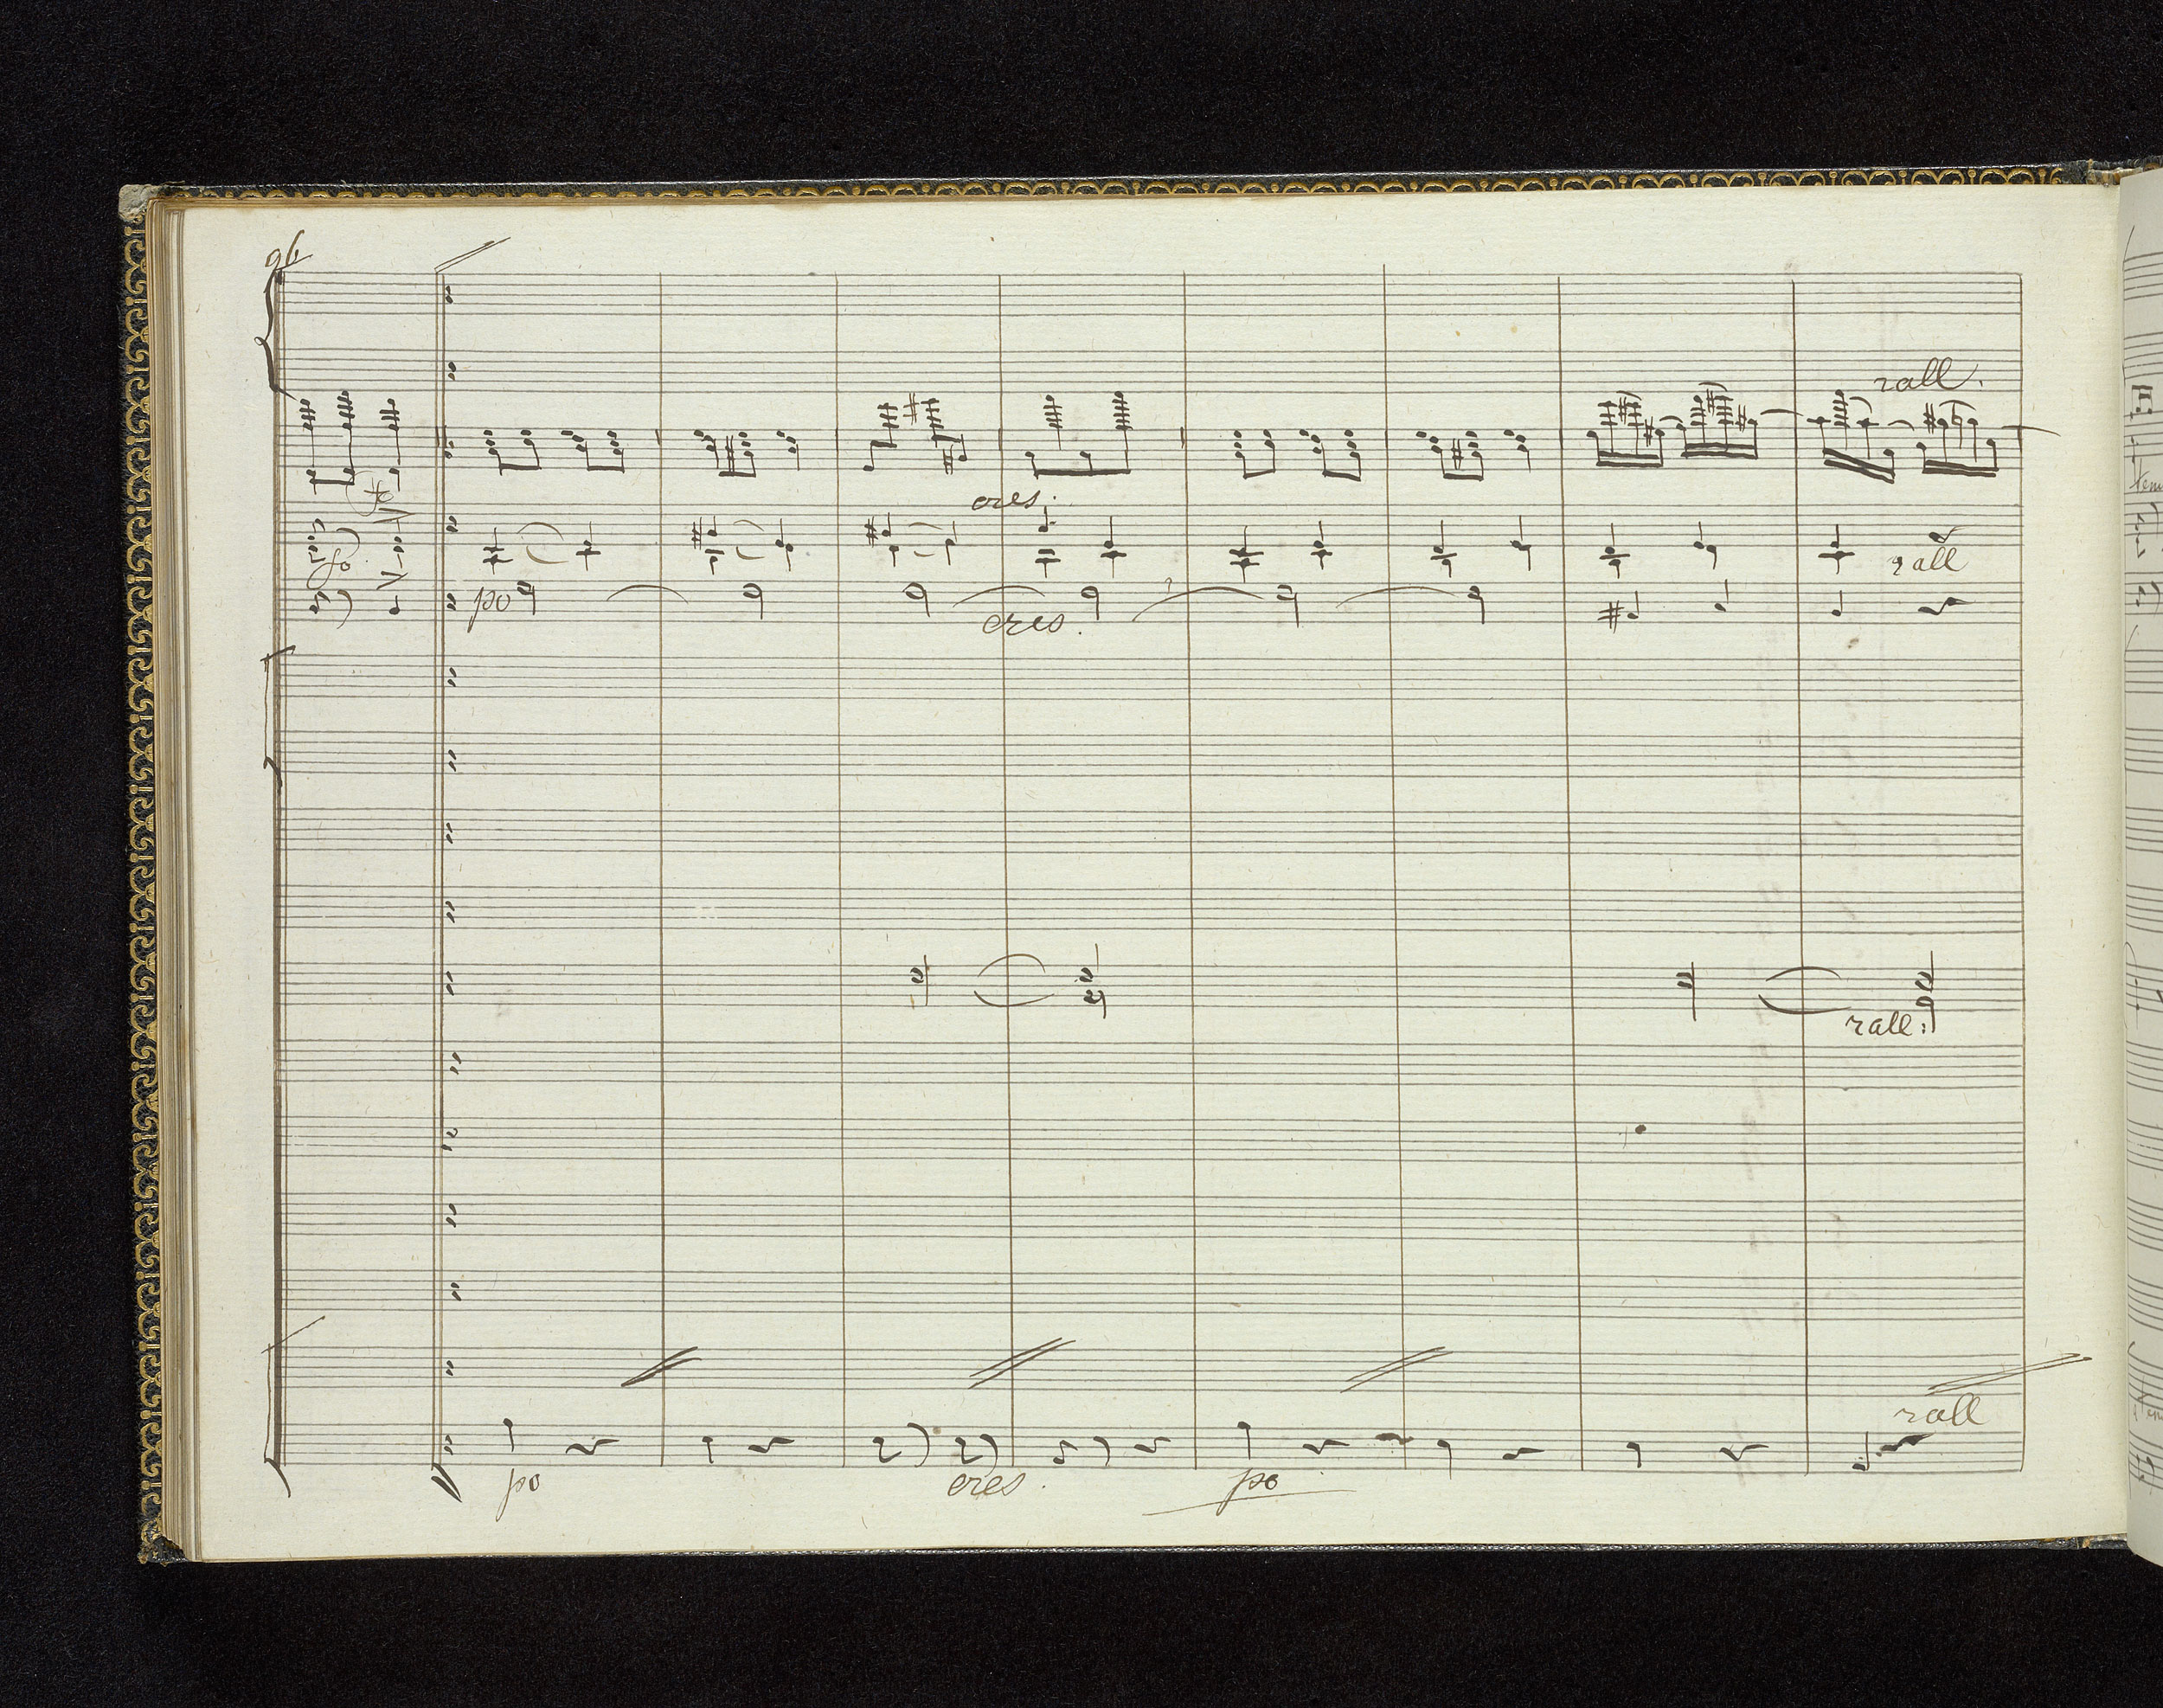 96
rall.
fo
cres.
fo
rall
po
cres.
rall:
rall
po
cres.
po